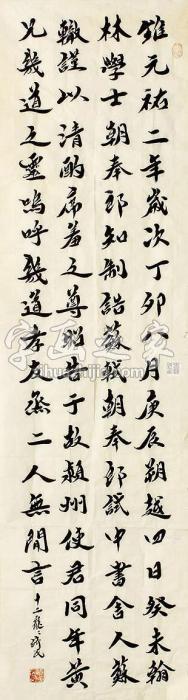 維元祐二年歲次丁卯八月庚辰朔越四日癸未翰
林學士朝奉郎知制誥蘇軾朝奉郎試中書舍人蘇
轍謹以清酌庶羞之奠昭告于故潁州使君同年黃
兄幾道之靈嗚呼幾道孝友烝二人無間言
字画之家